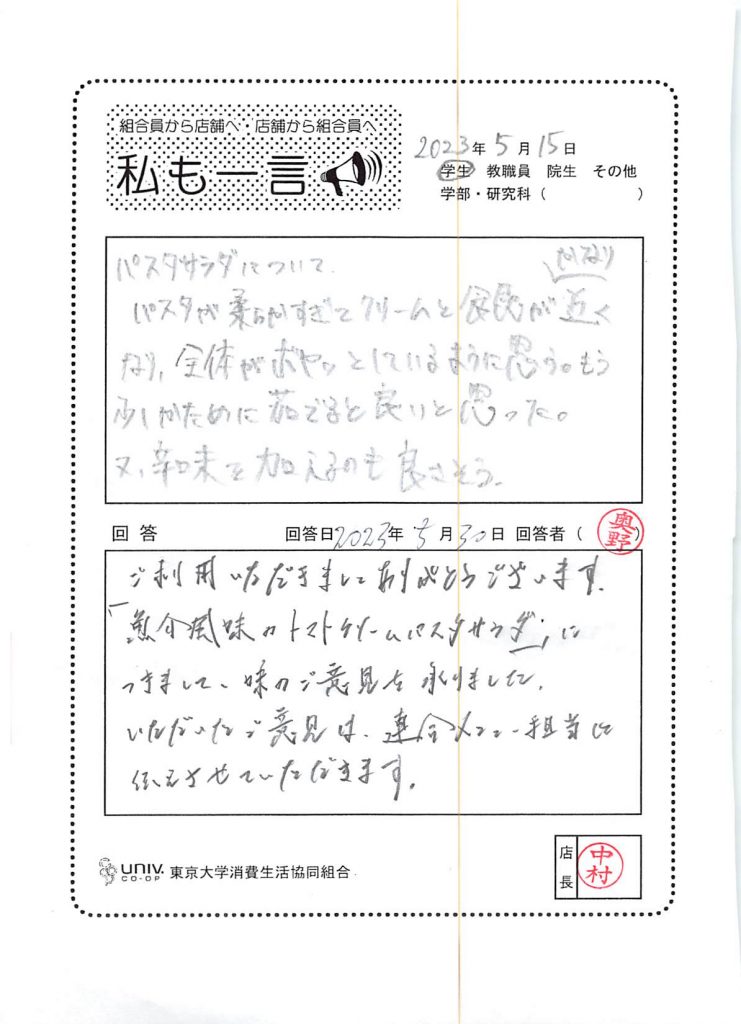 組合員から店舗へ・店舗から組合員へ
私も一言
2023年5月15日
学生 教職員 院生 その他
学部・研究科（ ）
パスタサラダについて
かなり
パスタが柔らかすぎてクリームと食感が近く
なり、全体がボヤッとしているように思う。もう
少しかために茹でると良いと思った。
又、辛味を加えるのも良さそう。
回答 回答日2023年5月30日 回答者（奥野）
ご利用いただきましてありがとうございます。
「魚介風味のトマトクリームパスタサラダ」に
つきまして、味のご意見を承りました。
いただいたご意見は、連合メニュー担当に
伝えさせていただきます。
UNIV. CO-OP 東京大学消費生活協同組合
店長 中村